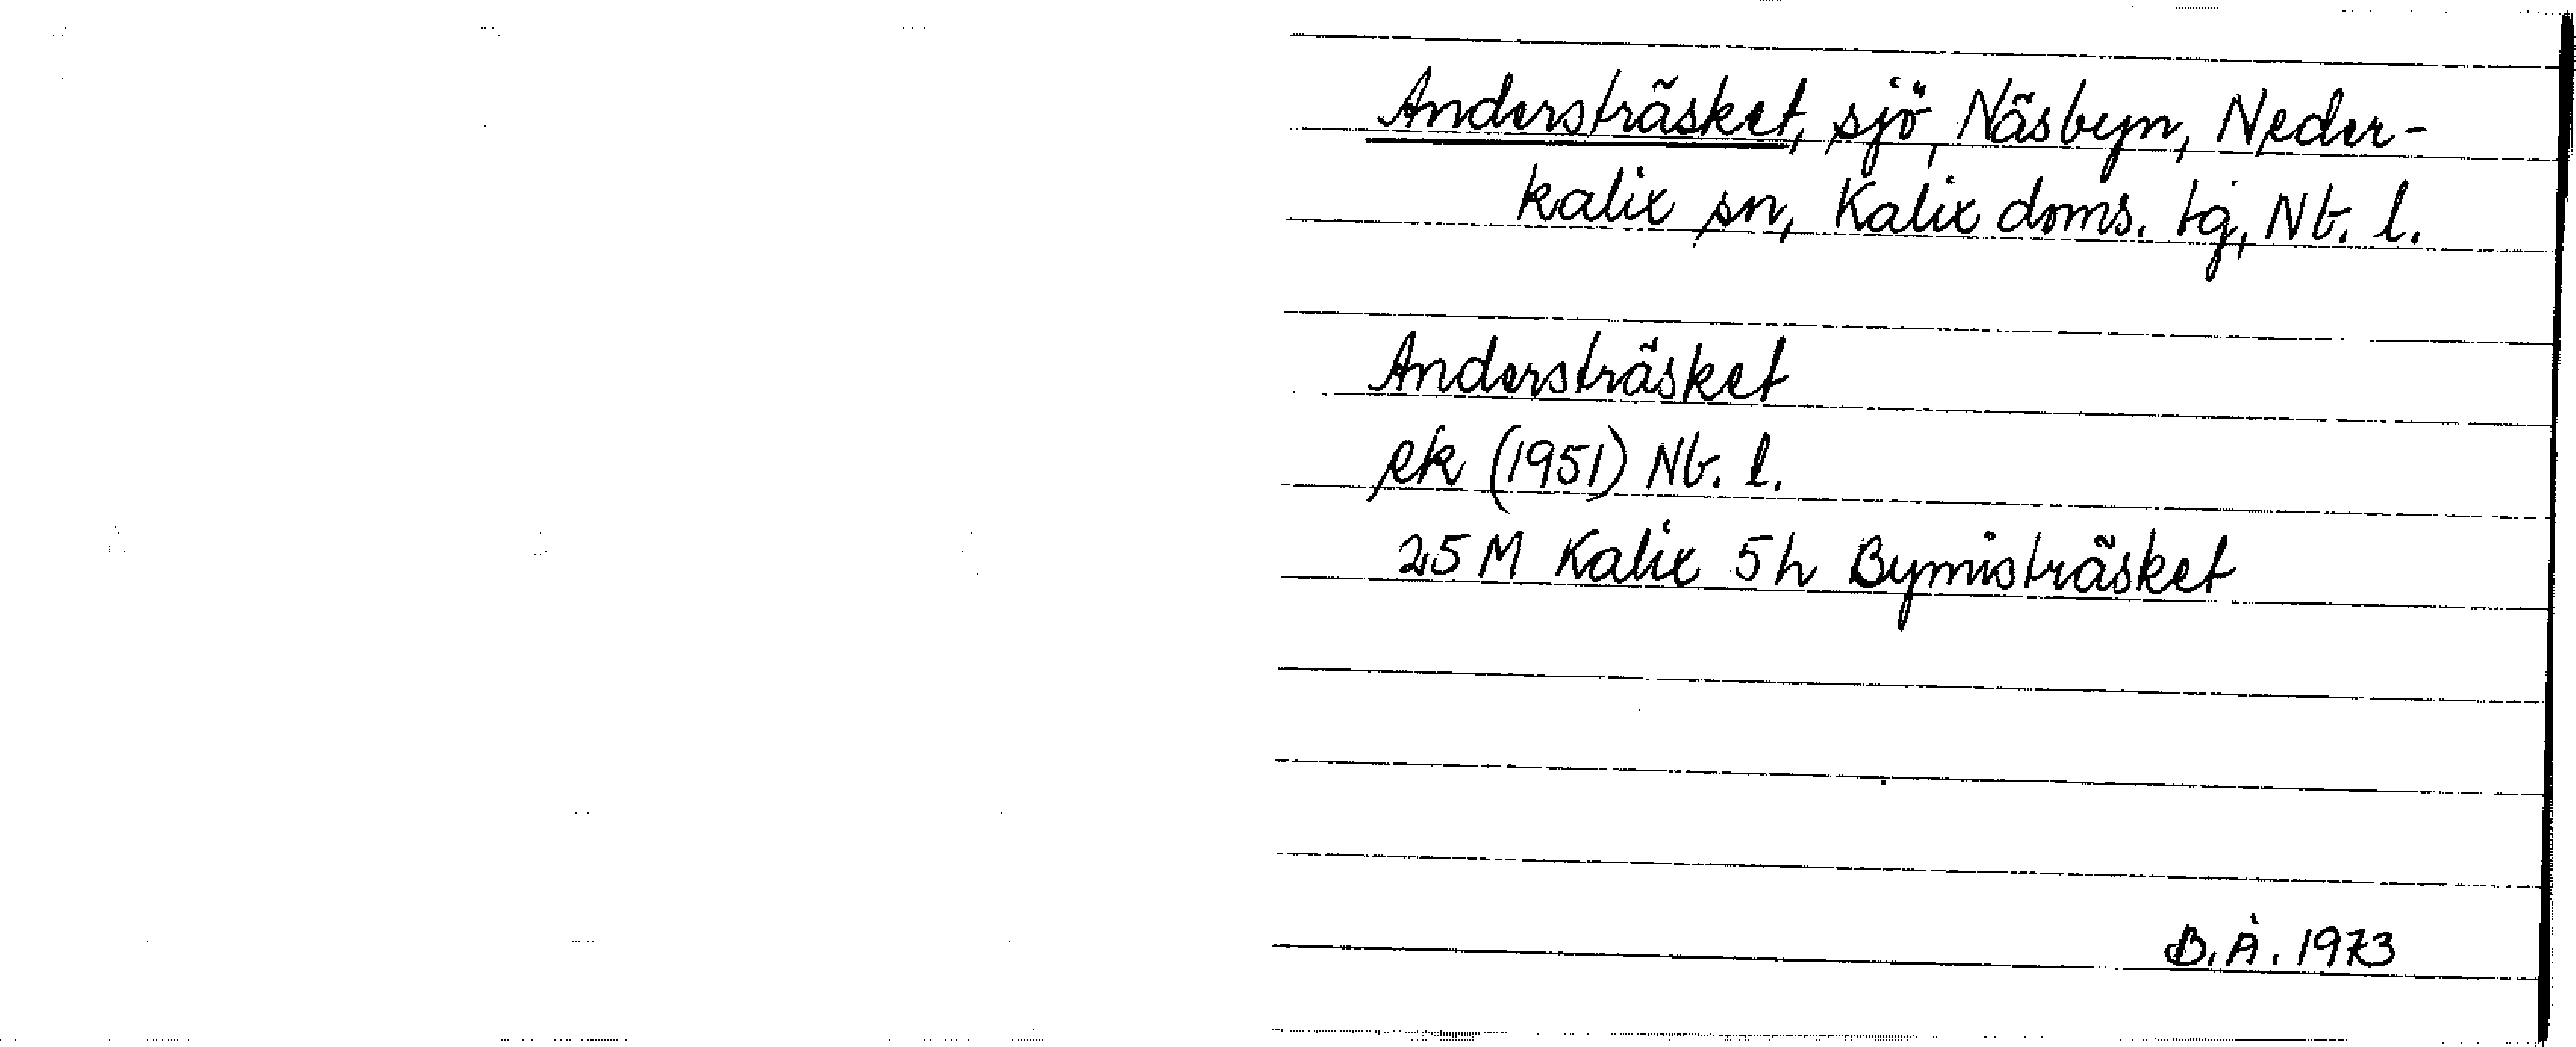 Andersträsket, sjö, Näsbyn, Neder-
kalix sn, Kalix doms. tg, Nb. l.
Andersträsket
ek (1951) Nb. l.
25 M Kalix 5h Bymisträsket
B.Å. 1973